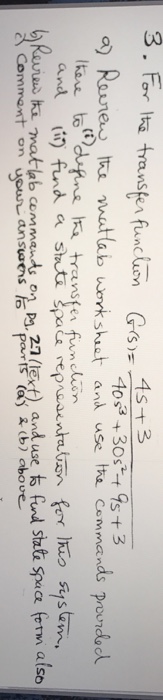 3. For the transfer function G(s) = 4s+3
40s³+30s²+9s+3
a) Review the matlab worksheet and use the commands provided
there to (i) define the transfer function
and (ii) find a state space representation for this system,
b) Review the matlab commands on pg. 27 (text) and use to find state space form also
c) Comment on your answers to parts (a) & (b) above